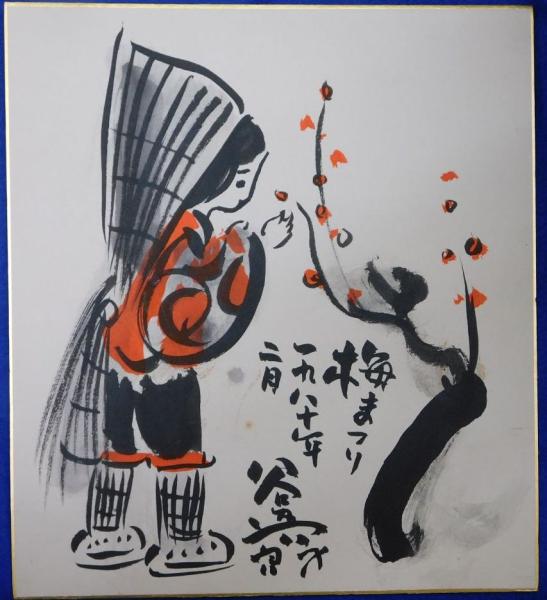 梅まつり
一九八十年
二月